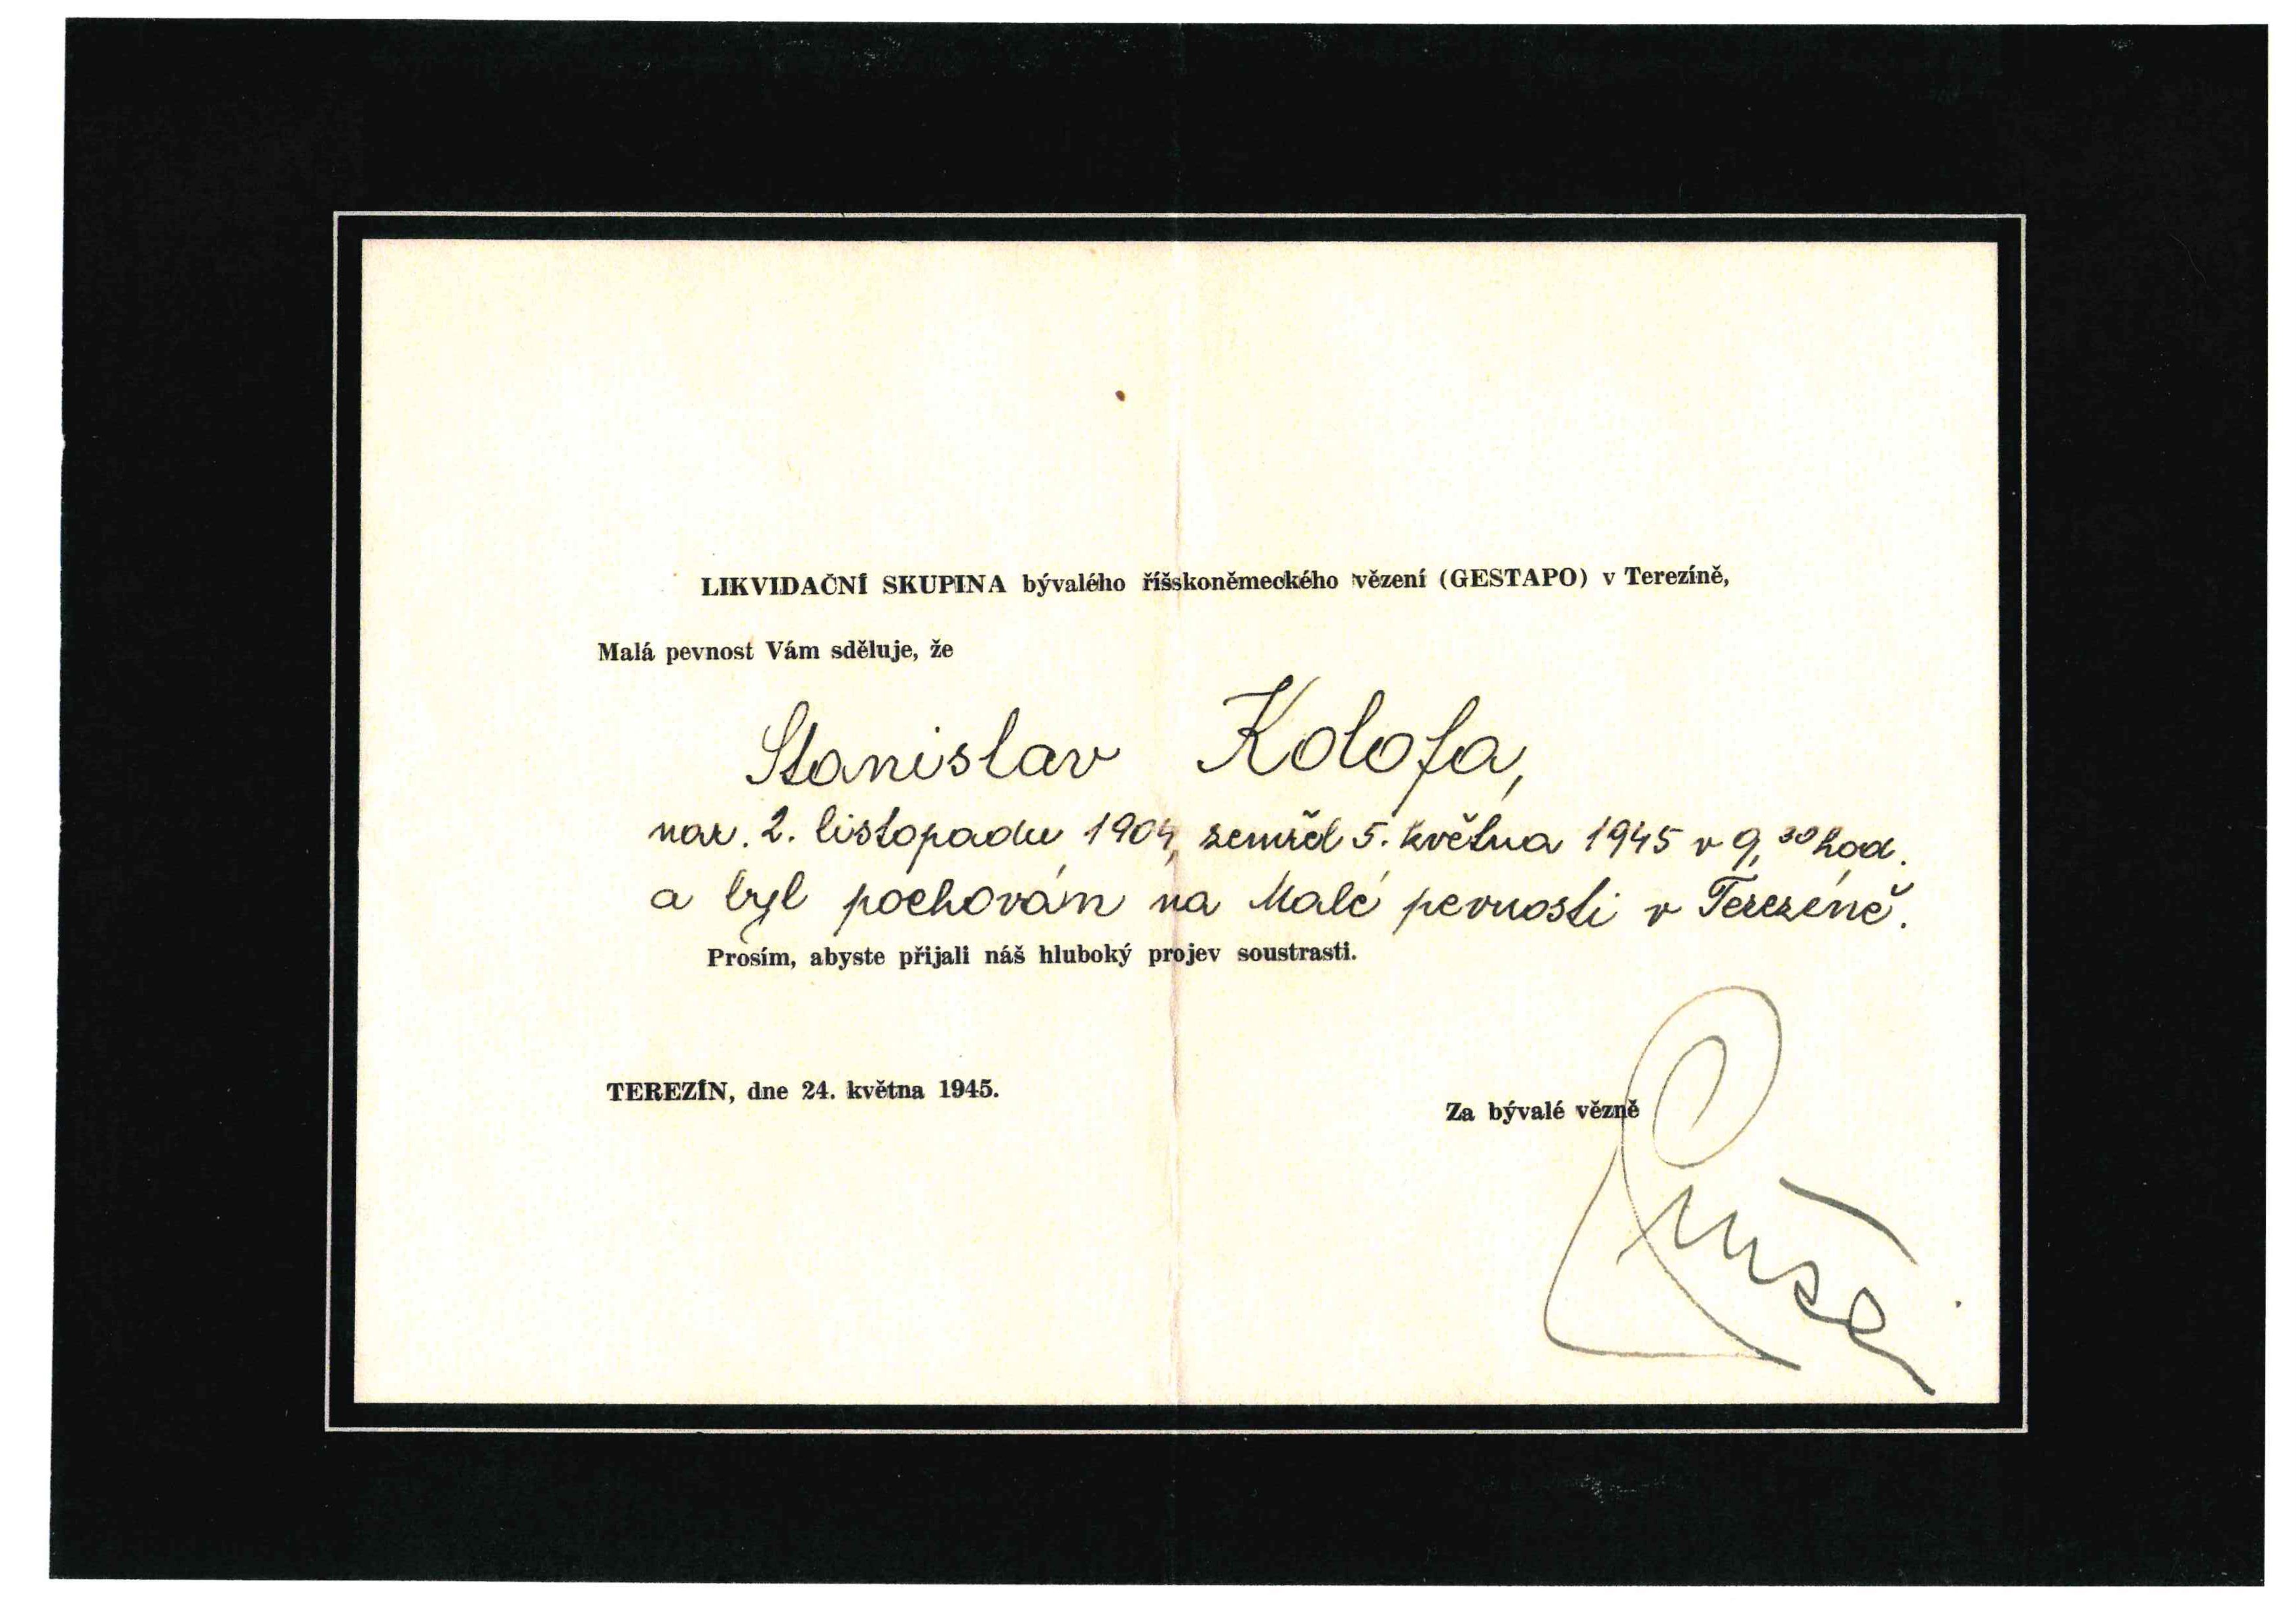 LIKVIDAČNÍ SKUPINA bývalého říšskoněmeckého vězení (GESTAPO) v Terezíně,
Malá pevnost Vám sděluje, že
Stanislav Kolofa,
nar. 2. listopadu 1904, zemřel 5. května 1945 v 9,30 hod.
a byl pochován na Malé pevnosti v Terezíně.
Prosím, abyste přijali náš hluboký projev soustrasti.
TEREZÍN, dne 24. května 1945.
Za bývalé vězně